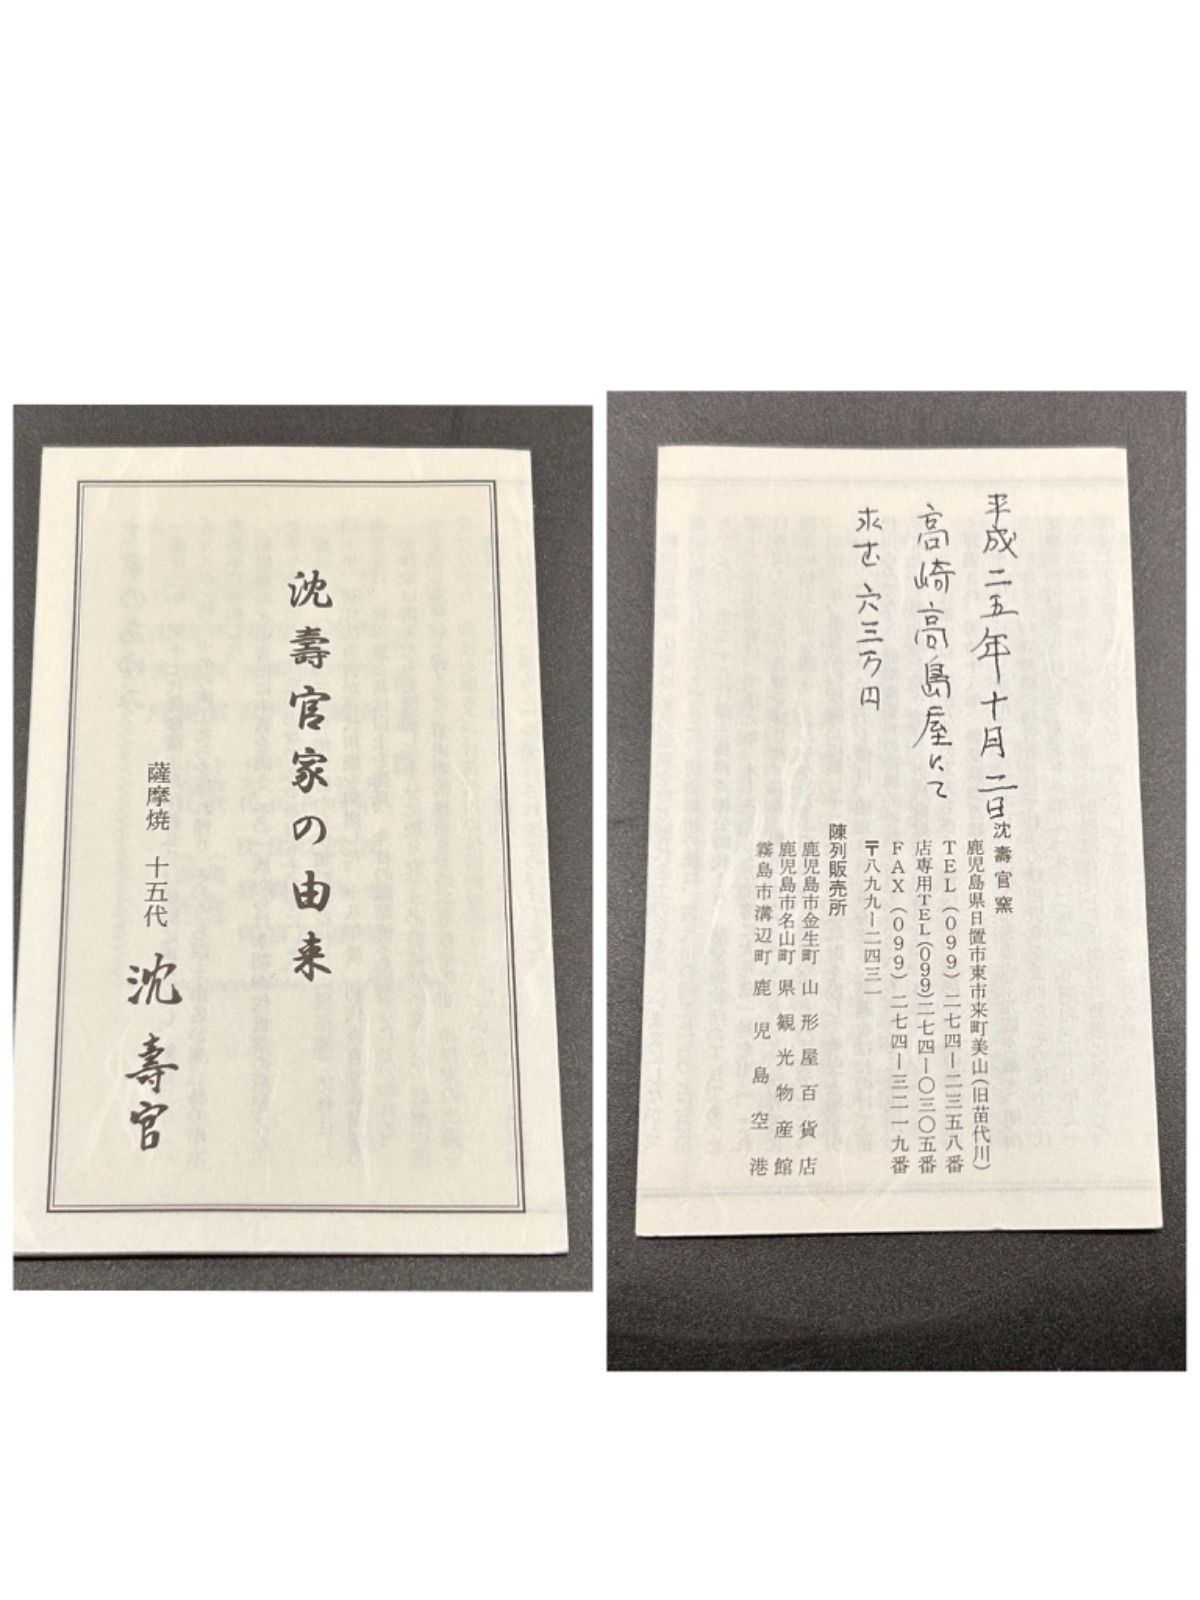 沈壽官家の由来
薩摩焼　十五代　沈壽官
平成二五年十月二日
高崎高島屋にて
求む 六三万円
沈壽官窯
鹿児島県日置市東市来町美山(旧苗代川)
TEL(099)二七四ー二三五八番
店専用TEL(099)二七四ー〇三〇五番
FAX(099)二七四ー三二一九番
〒八九九ー二四三一
陳列販売所
鹿児島市金生町 山形屋百貨店
鹿児島市名山町 県観光物産館
霧島市溝辺町 鹿児島空港